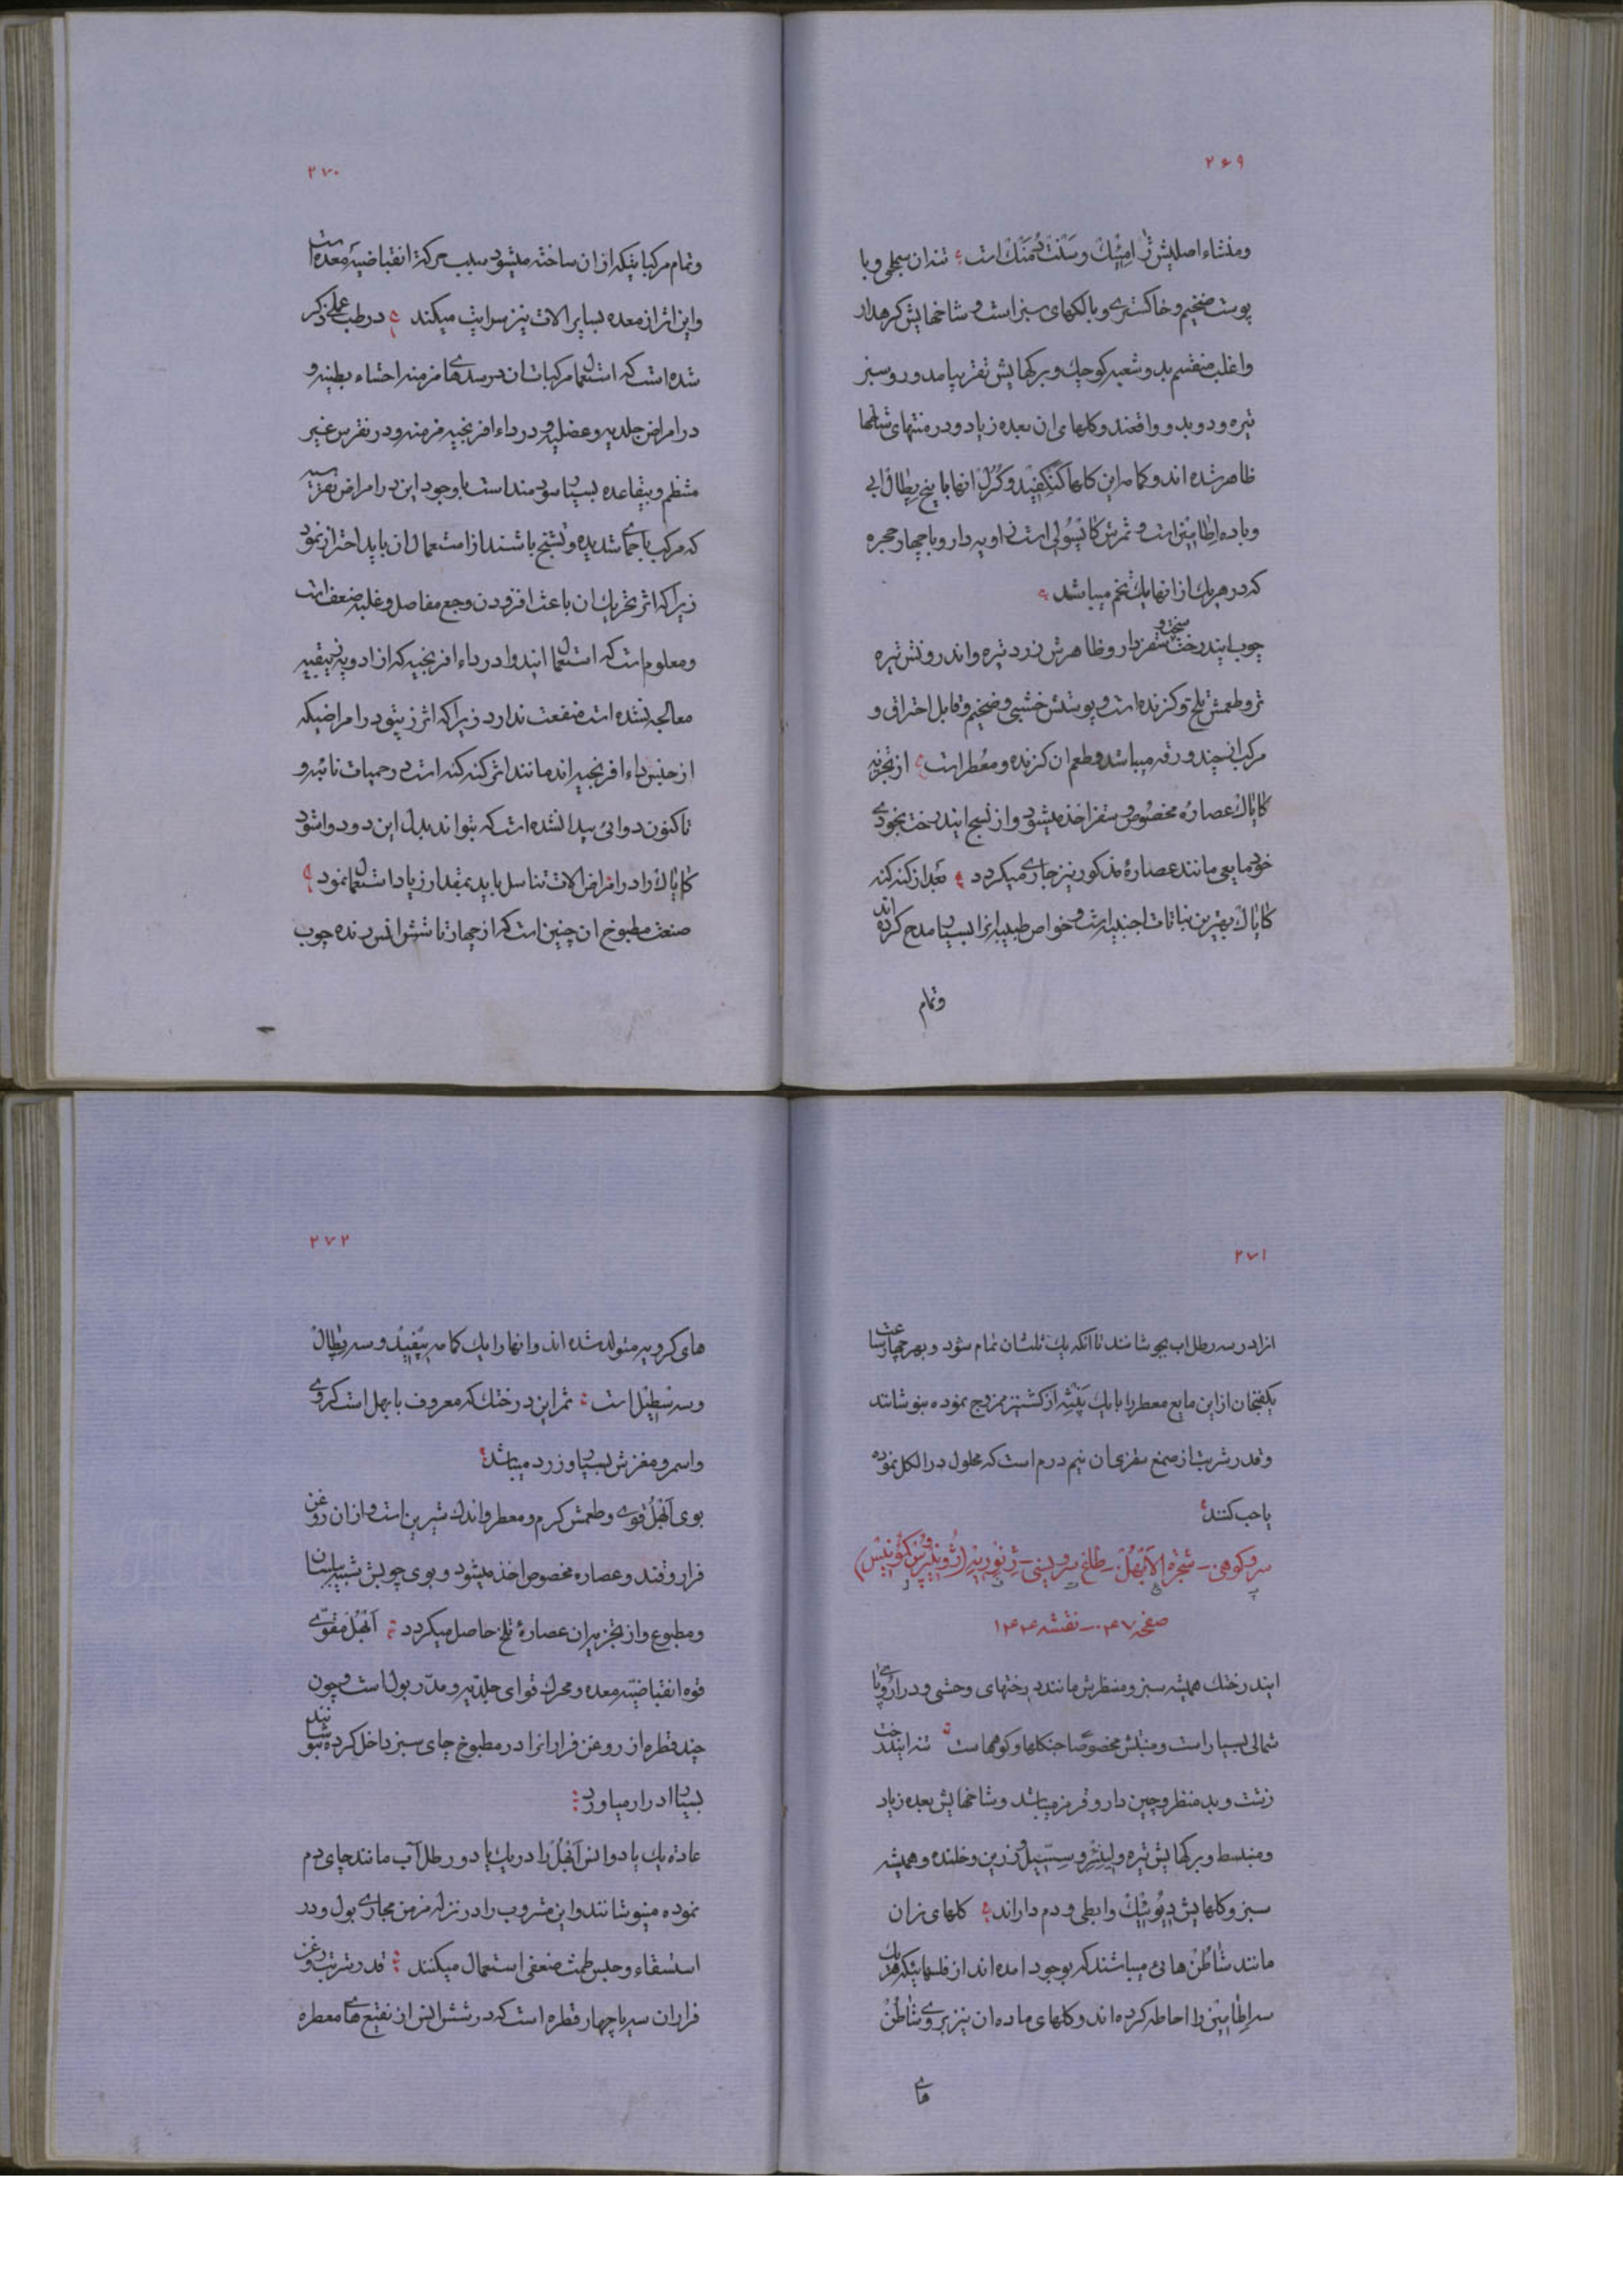 ۲۶۹
ومنشاء اصلیش ژامئیک وسنت دمنک است تنه ان سجلی وبا
پوست ضخیم وخاکستری وبا لکهای سبز است وشاخهایش کرهدار
واغلب منقسم بدو شعبه کوچک وبرکهایش تقریبا مدور وسبز
تیره ودوبدو واقعند وکلهای ان بعده زیاد ودر منتهای شاخها
ظاهر شده اند وکامه این کلها وکرل انها با پنج پطال ابی
وباده اطامین است وثمرش کاپسولی است زاویه دار وبا چهار حجره
که در هریک از انها یک تخم میباشد
چوب ایندرخت سخت و سقزدار وظاهرش زرد تیره واندرونش تیره
تر وطعمش تلخ وکزنده است وپوستش خشبی وضخیم وقابل احتراق و
مرکب از چند ورقه میباشد وطعم ان کزنده ومعطر است از تجزیه
کایاک عصاره مخصوص وسقز اخذ میشود واز نسج ایندرخت بخودی
خود مایعی مانند عصارهٔ مذکور نیز جاری میکردد بعد از کنه کنه
کایاک بهترین نباتات اجنبیه است وخواص طبیه انرا بسیار مدح کرده اند
وتمام
۲۷۰
وتمام مرکباتیکه از ان ساخته میشود سبب حرکة انقباضیهٔ معده است
واین اثر از معده بسایر الات نیز سرایت میکند در طب عملی ذکر
شده است که استعمال مرکبات ان در سدهای مزمنه احشاء بطنیه و
در امراض جلدیه وعضلیه ودر داء افرنجیه مزمنه ودر نقرس غیر
منتظم وبیقاعده بسیار سودمند است با وجود این در امراض نقرسیه
که مرکب با حمای شدیده وتشنج باشند از استعمال ان باید احتراز نمود
زیرا که اثر تحریک ان باعث افزودن وجع مفاصل وغلبه ضعف است
ومعلوم است که استعمال ایندوا در داء افرنجیه که از ادویه زیبقیه
معالجه نشده است منفعت ندارد زیرا که اثر زیبق در امراضیکه
از جنس داء افرنجیه اند مانند اثر کنه کنه است در حمیات نائبه و
تاکنون دوائی پیدا نشده است که بتواند بدل این دو دوا شود
کایاک را در امراض الات تناسل باید بمقدار زیاد استعمال نمود
صنعت مطبوخ ان چنین است که از چهار تا شش انس رنده چوب
۲۷۱
انرا در سه رطل اب بجوشانند تا انکه یک ثلث ان تمام شود وبهر چهار ساعت
یکفنجان از این مایع معطر را با یک از کشنیز ممزوج نموده بنوشانند
وقدر شربت از صمغ سقزی ان نیم درم است که محلول در الکل نموده
یا حب کنند
سروکوهی - شجرة الابهل - طلغ سرویسی - ژنوریه (ژونیپرس کمونیس)
صفحه ۰۴۷ - نقشه ۱۴۴
ایندرختک همیشه سبز ومنظرش مانند درختهای وحشی ودر اروپای
شمالی بسیار است ومنبتش مخصوصا جنکلها وکوهها است تنه ایندرخت
زشت وبد منظر وچین دار وقرمز میباشد وشاخهایش بعده زیاد
ومنبسط وبرکهایش تیره ولینئر وسسیل وزرین وخلنده وهمیشه
سبز وکلهایش دیوئیک وابطی ودم دار اند کلهای نران
مانند شاطن هائی میباشند که بوجود امده اند از فلسهائیکه هریک
سه اطامین را احاطه کرده اند وکلهای ماده ان نیز بروی شاطن
های
۲۷۲
های کرویه متولد شده اند وانها را یک کامه تریفید وسه پطال
وسه سطیل است ثمر این درختک که معروف بابهل است کروی
واسمر ومغزش بسیار زرد میباشد
بوی ابهل قوی وطعمش کرم ومعطر واندک شیرین است واز ان روغن
فرار وقند وعصاره مخصوص اخذ میشود وبوی چوبش شبیه ببلسان
ومطبوع واز تجزیه ان عصارهٔ تلخ حاصل میکردد ابهل مقوّی
قوه انقباضیّه معده ومحرک قوای جلدیه ومدّر بول است وچون
چند قطره از روغن فرار انرا در مطبوخ چای سبز داخل کرده بنوشانند
بسیار ادرار میاورد
عادة یک یا دو انس ابهل را در یک یا دو رطل آب مانند چای دم
نموده مینوشانند واین مشروب را در نزله مزمن مجاری بول ودر
استسقاء وحبس طمث ضعفی استعمال میکنند قدر شربت روغن
فرار ان سه یا چهار قطره است که در شش انس از نقیع های معطره